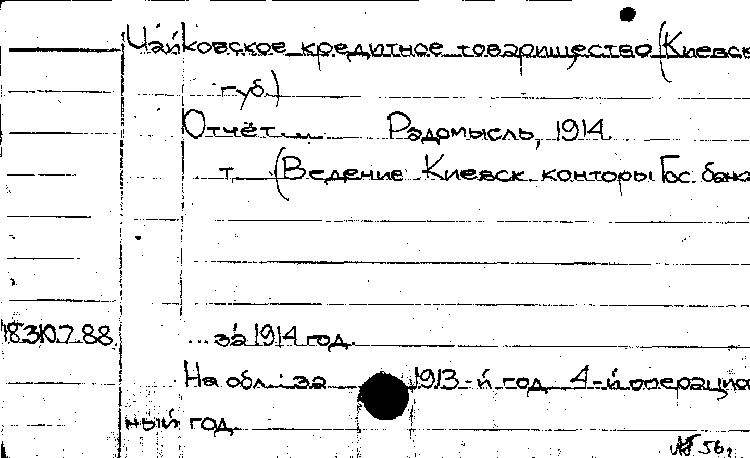 Чайковское кредитное товарищество (Киевск
губ.)
Отчёт... Радомысль, 1914.
т. (Ведение Киевск конторы Гос. банка
18.310.7.88 ... за 1914 год.
На обл.: за 1913-й год 4-й операцио
ный год
56г.